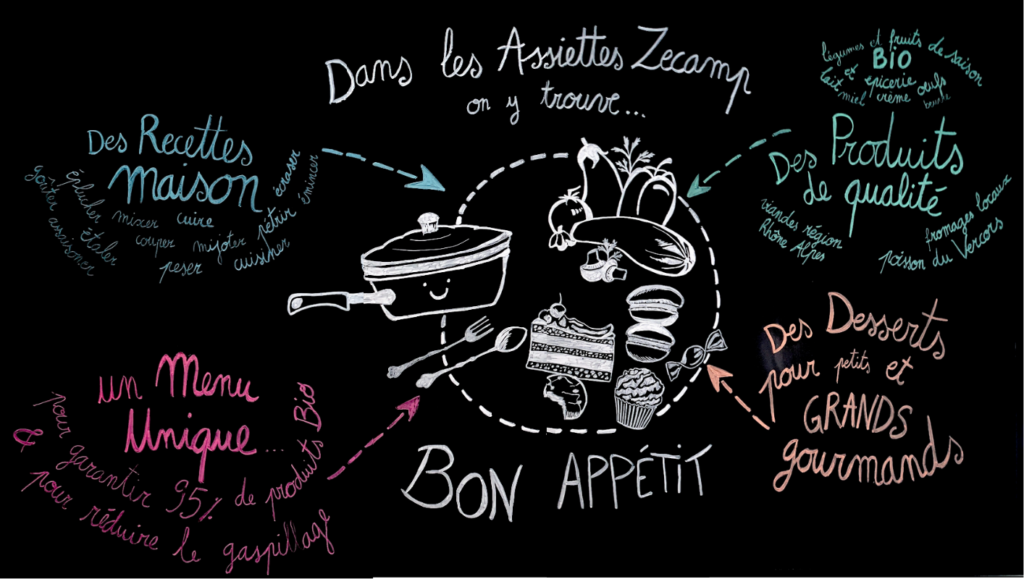 Dans les Assiettes Zecamp
on y trouve...
Des Recettes
maison
éplucher
écraser
goûter
mixer
cuire
pétrir
émincer
assaisonner
étaler
couper
mijoter
cuisiner
peser
légumes et fruits de saison
BIO
lait et épicerie oeufs
miel crème beurre
Des Produits
de qualité
viandes région
Rhône Alpes
fromages locaux
poisson du Vercors
un Menu
Unique...
pour garantir 95% de produits Bio
& pour réduire le gaspillage
Des Desserts
pour petits et
GRANDS
gourmands
BON APPÉTIT